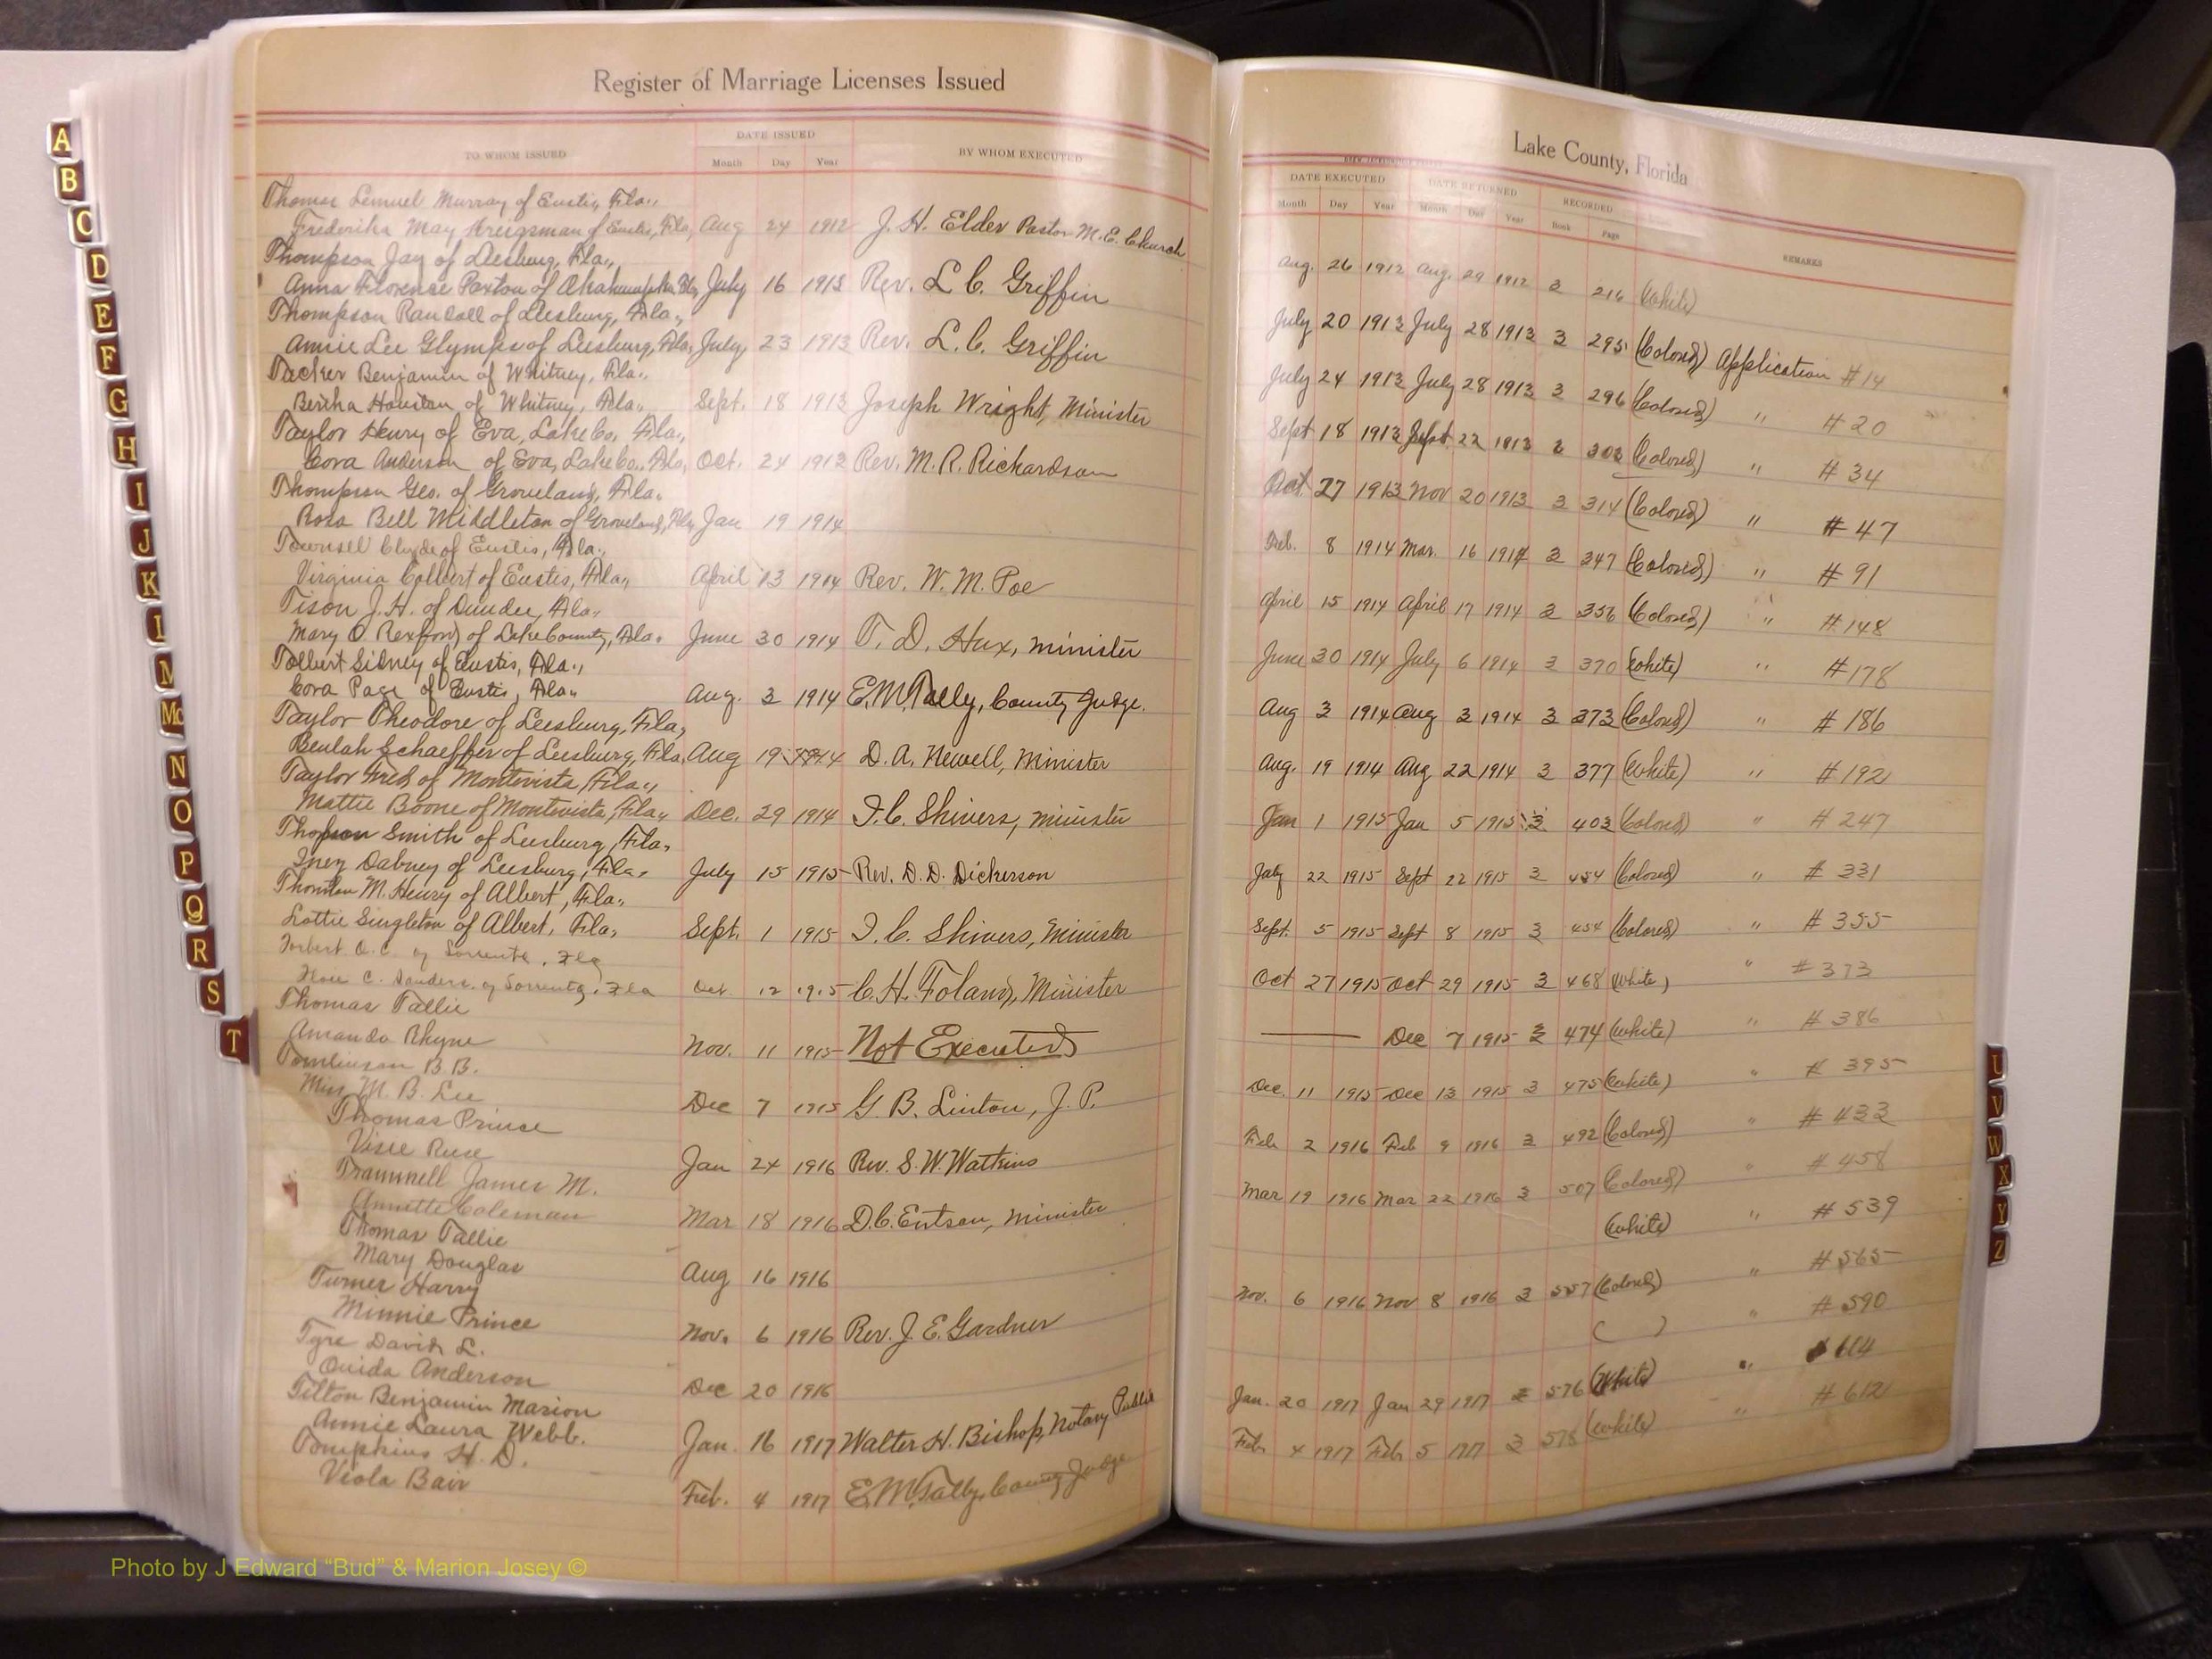 Register of Marriage Licenses Issued
TO WHOM ISSUED
DATE ISSUED
Month Day Year
BY WHOM EXECUTED
Thomas Lemuel Murray of Eustis, Fla.,
Frederika May Kreigsman of Eustis, Fla, Aug 24 1912 J. H. Elder Pastor M.E. Church
Thompson Jay of Leesburg, Fla.,
Anna Florence Paxton of Okahumpka Fla, July 16 1913 Rev. L. C. Griffin
Thompson Randall of Leesburg, Fla.,
Annie Lee Glymps of Leesburg, Fla, July 23 1913 Rev. L. C. Griffin
Tucker Benjamin of Whitney, Fla.,
Bertha Houston of Whitney, Fla., Sept. 18 1913 Joseph Wright, Minister
Taylor Henry of Eva, Lake Co. Fla.,
Cora Anderson of Eva, Lake Co. Fla, Oct. 24 1913 Rev. M. R. Richardson
Thompson Geo. of Groveland, Fla.
Rosa Bell Middleton of Groveland, Fla, Jan 19 1914
Clyde of Eustis, Fla.,
Virginia Colbert of Eustis, Fla., April 13 1914 Rev. W. M. Poe
Tison J. H. of Dundee, Fla.
Mary O. Rexford of Lake County, Fla. June 30 1914 T. D. Hux, Minister
Tolbert Sidney of Eustis, Fla.,
Cora Page of Eustis, Fla. Aug. 3 1914 E. M. Tally, County Judge.
Taylor Theodore of Leesburg, Fla,
Beulah Schaeffer of Leesburg, Fla, Aug 19 1914 D. A. Newell, Minister
Taylor Fred of Montevista, Fla.,
Mattie Boone of Montevista, Fla., Dec. 29 1914 I. C. Shivers, Minister
Smith of Leesburg, Fla,
Inez Dabney of Leesburg, Fla. July 15 1915 Rev. D. D. Dickerson
Thornton M. Henry of Albert, Fla.,
Lottie Singleton of Albert, Fla, Sept. 1 1915 I. C. Shivers, Minister
Torbert O. C. of Sorrento, Fla
C. Sanders of Sorrento, Fla Oct. 12 1915 C. H. Foland, Minister
Thomas Tallie
Amanda Rhyne Nov. 11 1915 Not Executed
Tomlinson B. B.
Miss M. B. Lee Dec 7 1915 G. B. Linton, J. P.
Thomas Prince
Visee Ruse Jan 24 1916 Rev. S. W. Watkins
Trammell James M.
Annette Coleman Mar 18 1916 D. C. Entson, Minister
Thomas Tallie
Mary Douglas Aug 16 1916
Turner Harry
Minnie Prince Nov. 6 1916 Rev. J. E. Gardner
Tyre David L.
Ouida Anderson Dec 20 1916
Tilton Benjamin Marion
Annie Laura Webb. Jan. 16 1917 Walter H. Bishop, Notary Public
Tompkins H. D.
Viola Bair Feb. 4 1917 E. M. Tally, County Judge
Lake County, Florida
DATE EXECUTED DATE RETURNED RECORDED REMARKS
Month Day Year Month Day Year Book Page
Aug. 26 1912 Aug. 29 1912 3 216 (White)
July 20 1913 July 28 1913 3 295 (Colored) Application #14
July 24 1913 July 28 1913 3 296 (Colored) " #20
Sept 18 1913 Sept. 22 1913 3 303 (Colored) " #34
Oct. 27 1913 Nov 20 1913 3 314 (Colored) " #47
Feb. 8 1914 Mar. 16 1914 3 347 (Colored) " #91
April 15 1914 April 17 1914 3 356 (Colored) " #148
June 30 1914 July 6 1914 3 370 (White) " #178
Aug 3 1914 Aug 3 1914 3 373 (Colored) " #186
Aug. 19 1914 Aug 22 1914 3 377 (White) " #192
Jan 1 1915 Jan 5 1915 3 403 (Colored) " #247
July 22 1915 Sept 22 1915 3 454 (Colored) " #331
Sept. 5 1915 Sept 8 1915 3 454 (Colored) " #355
Oct 27 1915 Oct 29 1915 3 468 (White) " #373
— Dec 7 1915 3 474 (White) " #386
Dec. 11 1915 Dec 13 1915 3 475 (White) " #395
Feb 2 1916 Feb 9 1916 3 492 (Colored) " #433
Mar 19 1916 Mar 22 1916 3 507 (Colored) " #458
(White) " #539
Nov. 6 1916 Nov 8 1916 3 557 (Colored) " #565
( ) " #590
Jan. 20 1917 Jan 29 1917 3 576 (White) " 614
Feb. 4 1917 Feb 5 1917 3 578 (White) " #612
A
B
C
D
E
F
G
H
I
J
K
L
M
Mc
N
O
P
Q
R
S
T
U
V
W
X
Y
Z
Photo by J Edward “Bud” & Marion Josey ©